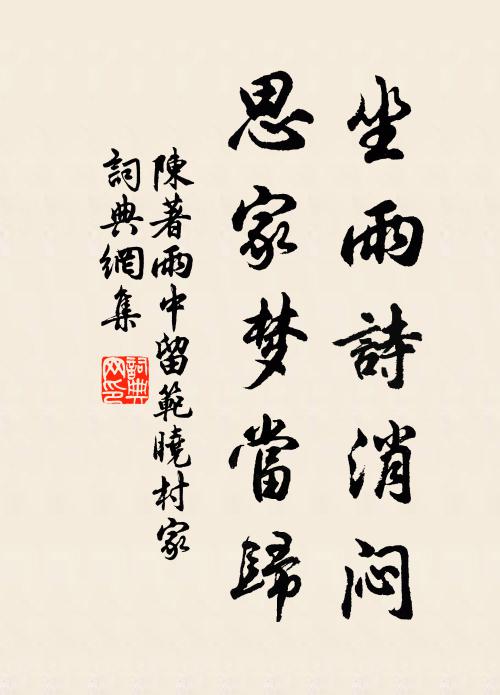 坐雨詩消悶
思家梦當歸
陳著雨中留範曉村家
詞典網集
詞典网印